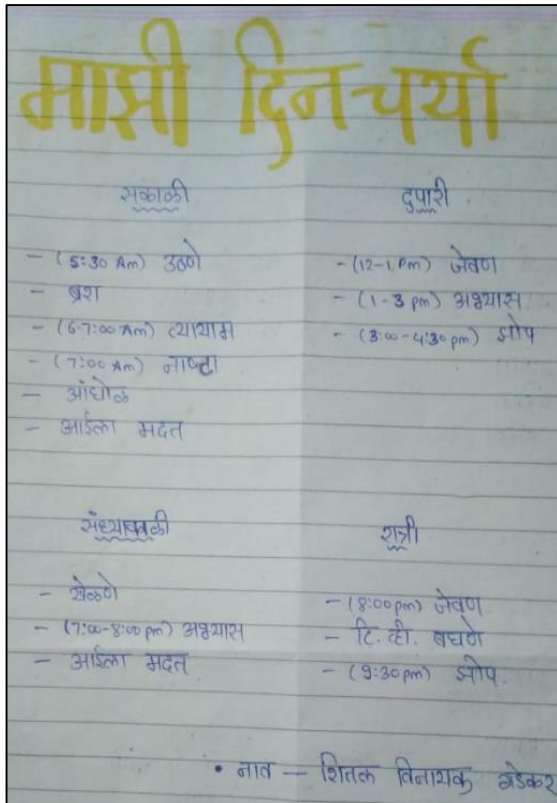 माझी दिनचर्या
सकाळी
- (5:30 Am) उठणे
- ब्रश
- (6-7:00 Am) व्यायाम
- (7:00 Am) नाष्टा
- आंघोळ
- आईला मदत
दुपारी
- (12-1 Pm) जेवण
- (1-3 pm) अभ्यास
- (3:00-4:30 pm) झोप
संध्याकाळी
- खेळणे
- (7:00-8:00 pm) अभ्यास
- आईला मदत
रात्री
- (8:00 pm) जेवण
- टि. व्ही. बघणे
- (9:30 pm) झोप
• नाव — शितल विनायक